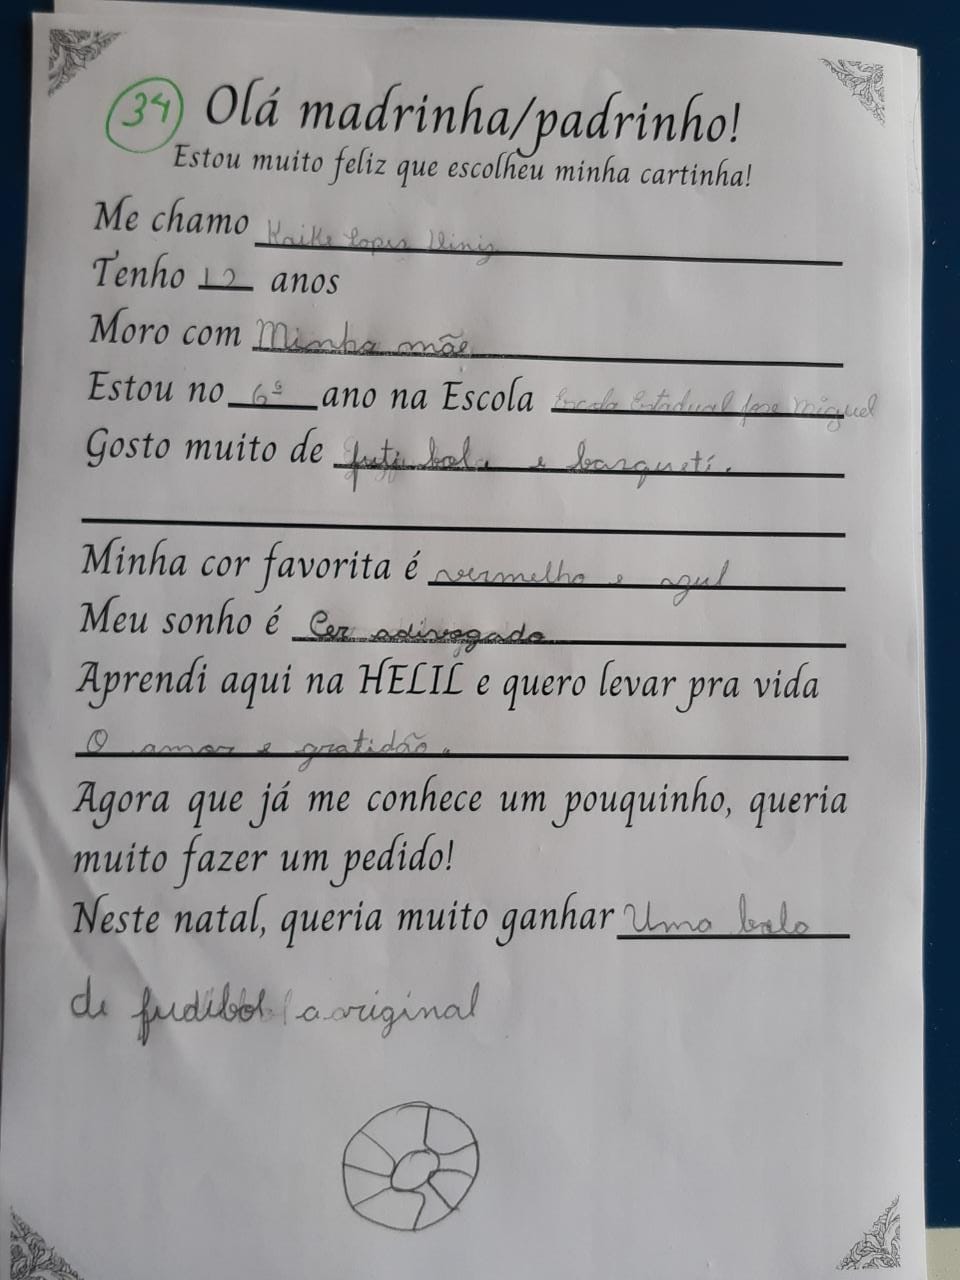 34 Olá madrinha/padrinho!
Estou muito feliz que escolheu minha cartinha!
Me chamo Kaike Lopes
Tenho 12 anos
Moro com Minha mãe
Estou no 6º ano na Escola Escola Estadual Jose Miguel
Gosto muito de futi bola e barqueti.
Minha cor favorita é vermelho e azul
Meu sonho é Cer adivogado
Aprendi aqui na HELIL e quero levar pra vida
O amor e gratidão.
Agora que já me conhece um pouquinho, queria
muito fazer um pedido!
Neste natal, queria muito ganhar Uma bola
de fudibol a original